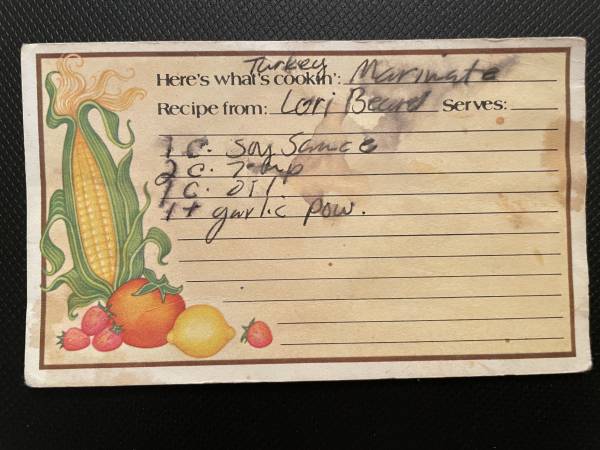 Turkey
Here's what's cookin': Marinate
Recipe from: Lori Beard Serves:
1 C. Soy Sauce
2 C. 7-up
1 C. Oil
1 t garlic pow.